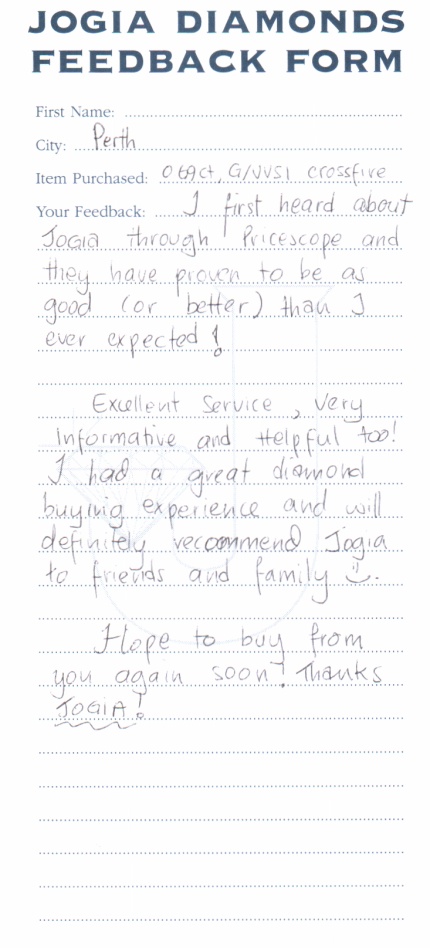 JOGIA DIAMONDS
FEEDBACK FORM
First Name:
City: Perth
Item Purchased: 0 69ct, G/VVS1 crossfire
Your Feedback: I first heard about
JOGIA through Pricescope and
they have proven to be as
good (or better) than I
ever expected!
Excellent Service, very
Informative and Helpful too!
I had a great diamond
buying experience and will
definitely recommend Jogia
to friends and family :).
Hope to buy from
you again soon! Thanks
JOGIA!